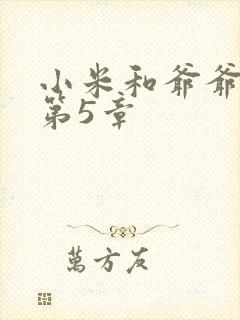 小米和爷爷
第5章
萬方友